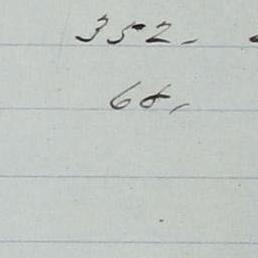 352,
68,